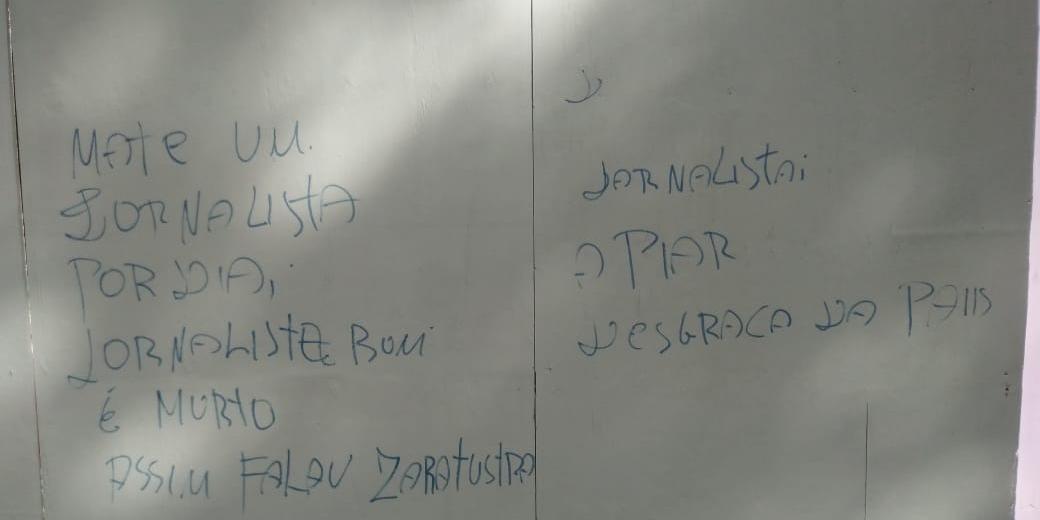 MATE UM.
JORNALISTA
POR DIA,
JORNALISTA BOM
É MORTO
ASSIM FALAU ZARATUSTRA
JORNALISTA;
A PIAR
DESGRACA DA PAIIS